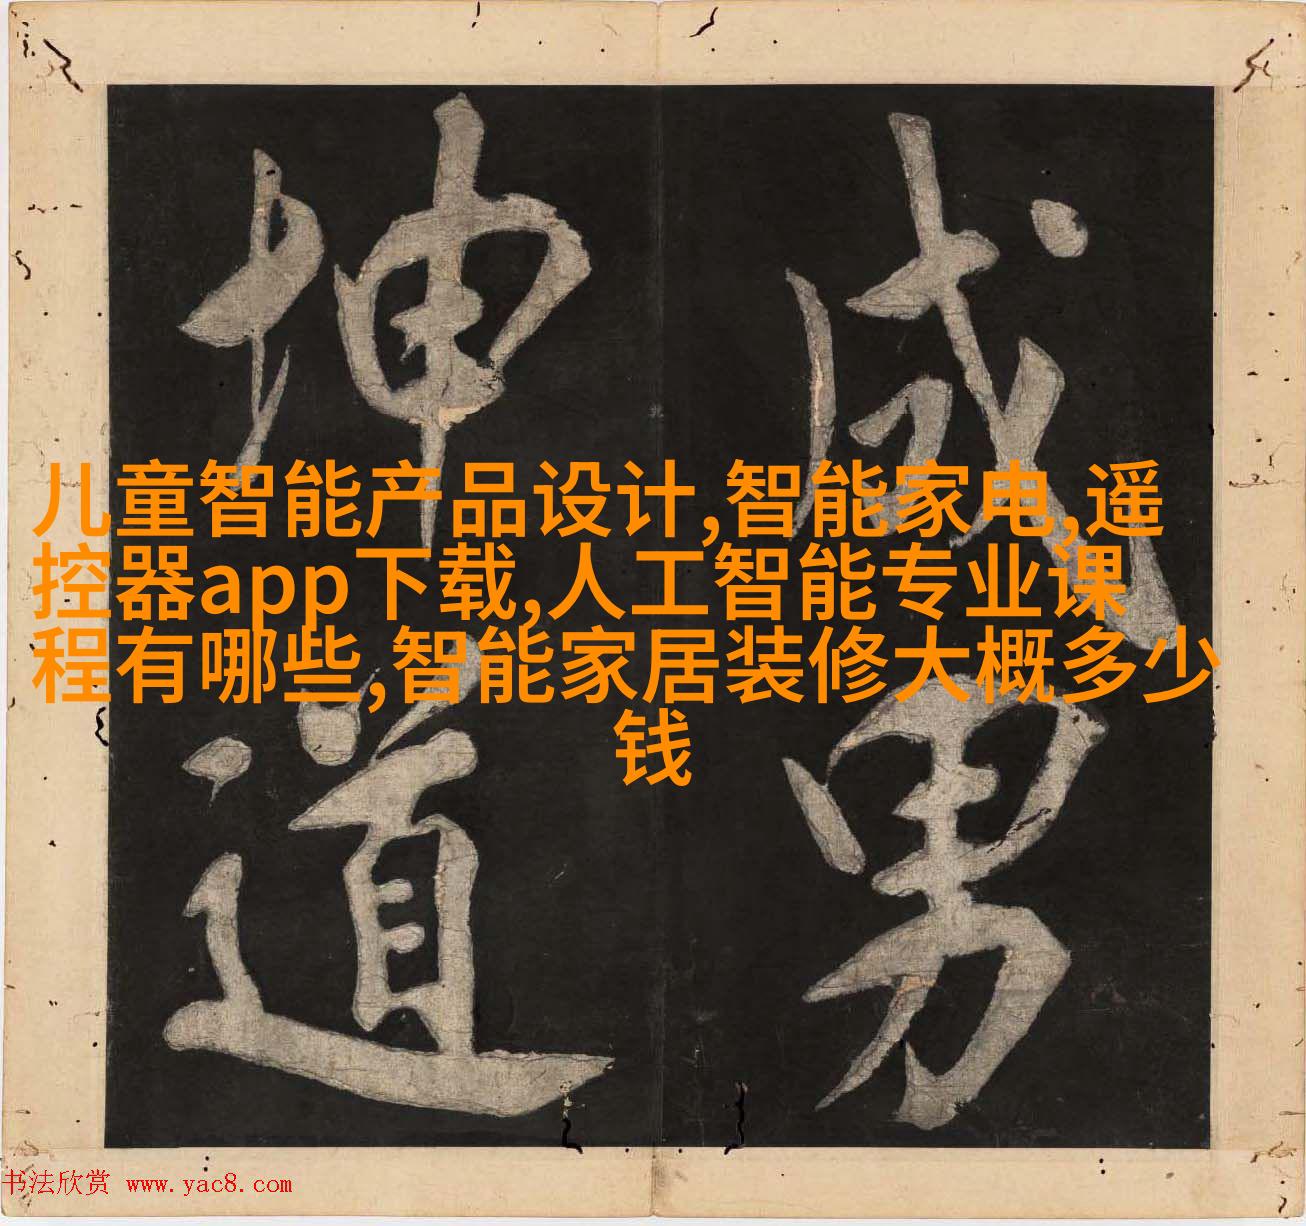 成男
坤道
儿童智能产品设计,智能家电,遥
控器app下载,人工智能专业课
程有哪些,智能家居装修大概多少
钱
书法欣赏 www.yac8.com